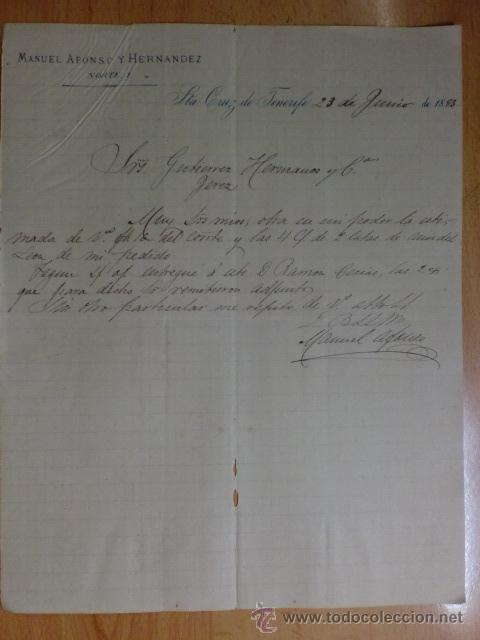 MANUEL AFONSO Y HERNANDEZ
NORTE, 1
Sta Cruz de Tenerife 23 de Junio de 1883
Sres Gutierrez Hermanos y Cª
Jerez
Muy Sres mios, obra en mi poder la esti-
mada de Vs. del corrte y las 4 de
de mi pedido
entregué á este D. Ramon las
que para dicho Sr remitieron adjunto
Sin otro particular me repito de Vs
B.L.S.M.
Manuel Afonso
todocoleccion
www.todocoleccion.net